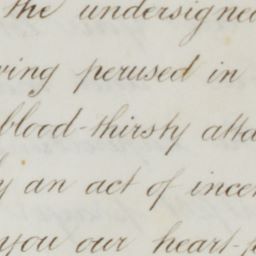 the undersigned
ving perused in
blood-thirsty atta
y an act of incen
you our heart-f